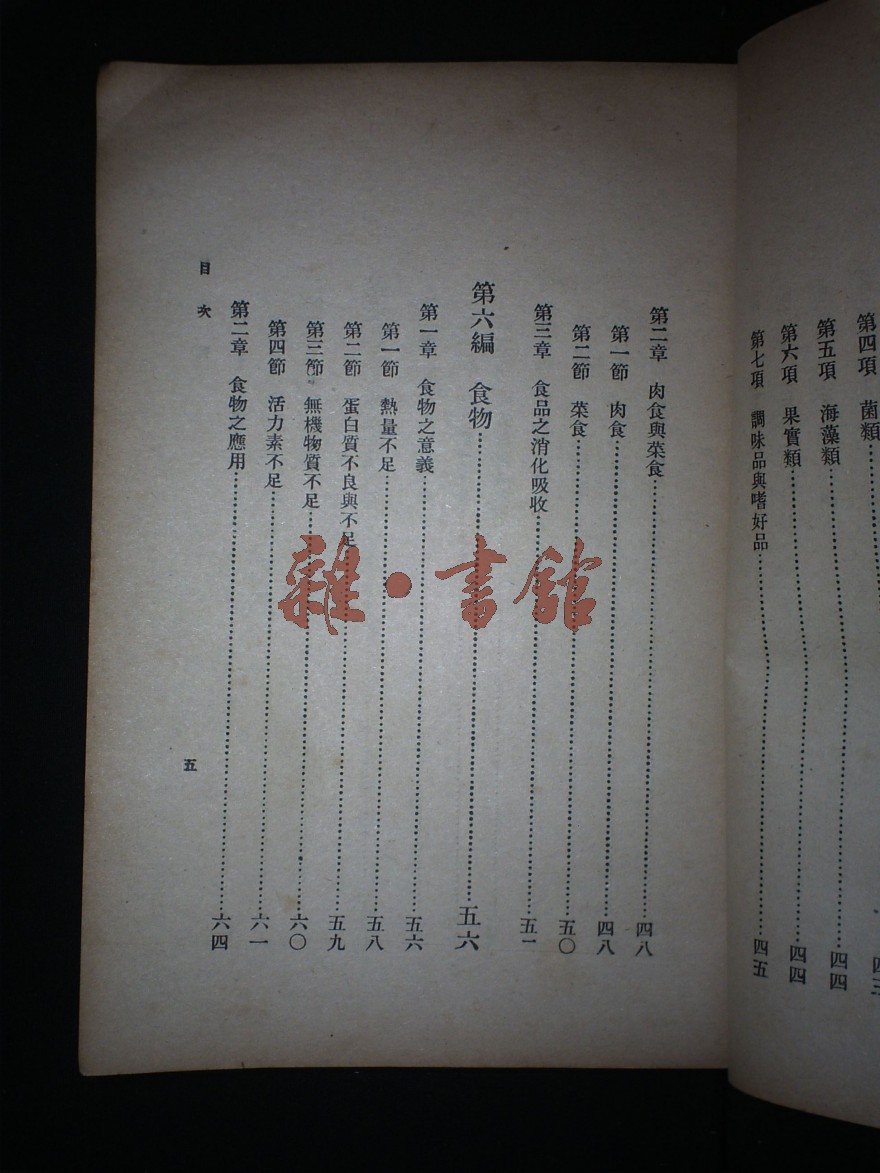 第四項 菌類
第五項 海藻類……四四
第六項 果實類……四四
第七項 調味品與嗜好品……四五
第二章 肉食與菜食……四八
第一節 肉食……四八
第二節 菜食……五〇
第三章 食品之消化吸收……五一
第六編 食物……五六
第一章 食物之意義……五六
第一節 熱量不足……五八
第二節 蛋白質不良與不足……五九
第三節 無機物質不足……六〇
第四節 活力素不足……六一
第二章 食物之應用……六四
目次
五
雜·書館